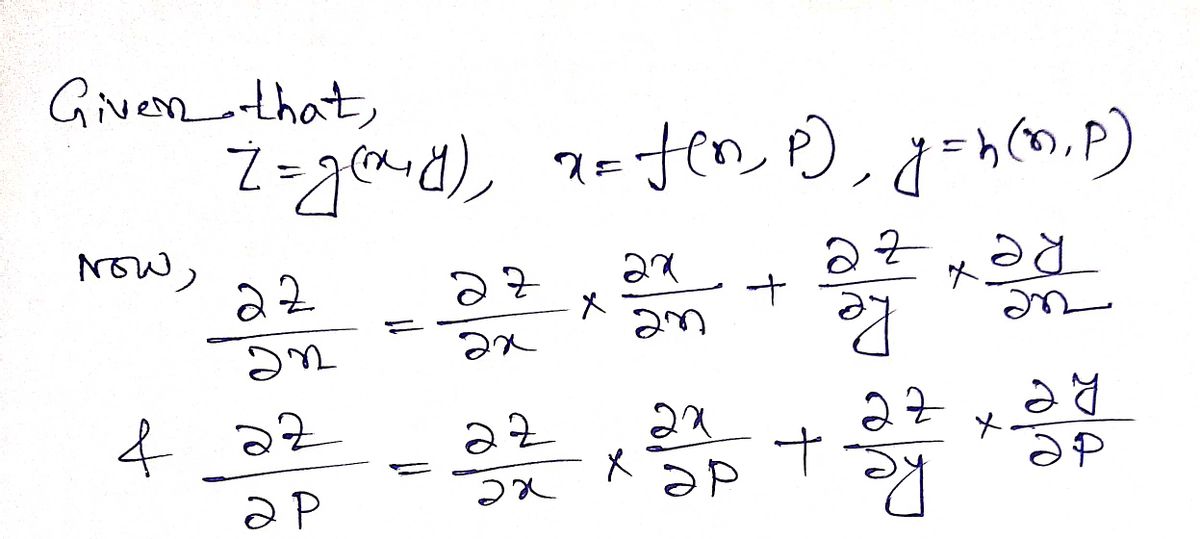 Given that,
Z = g(x, y), x = f(n, P), y = h(n, P)
Now, ∂z/∂n = ∂z/∂x × ∂x/∂n + ∂z/∂y × ∂y/∂n
& ∂z/∂P = ∂z/∂x × ∂x/∂P + ∂z/∂y × ∂y/∂P